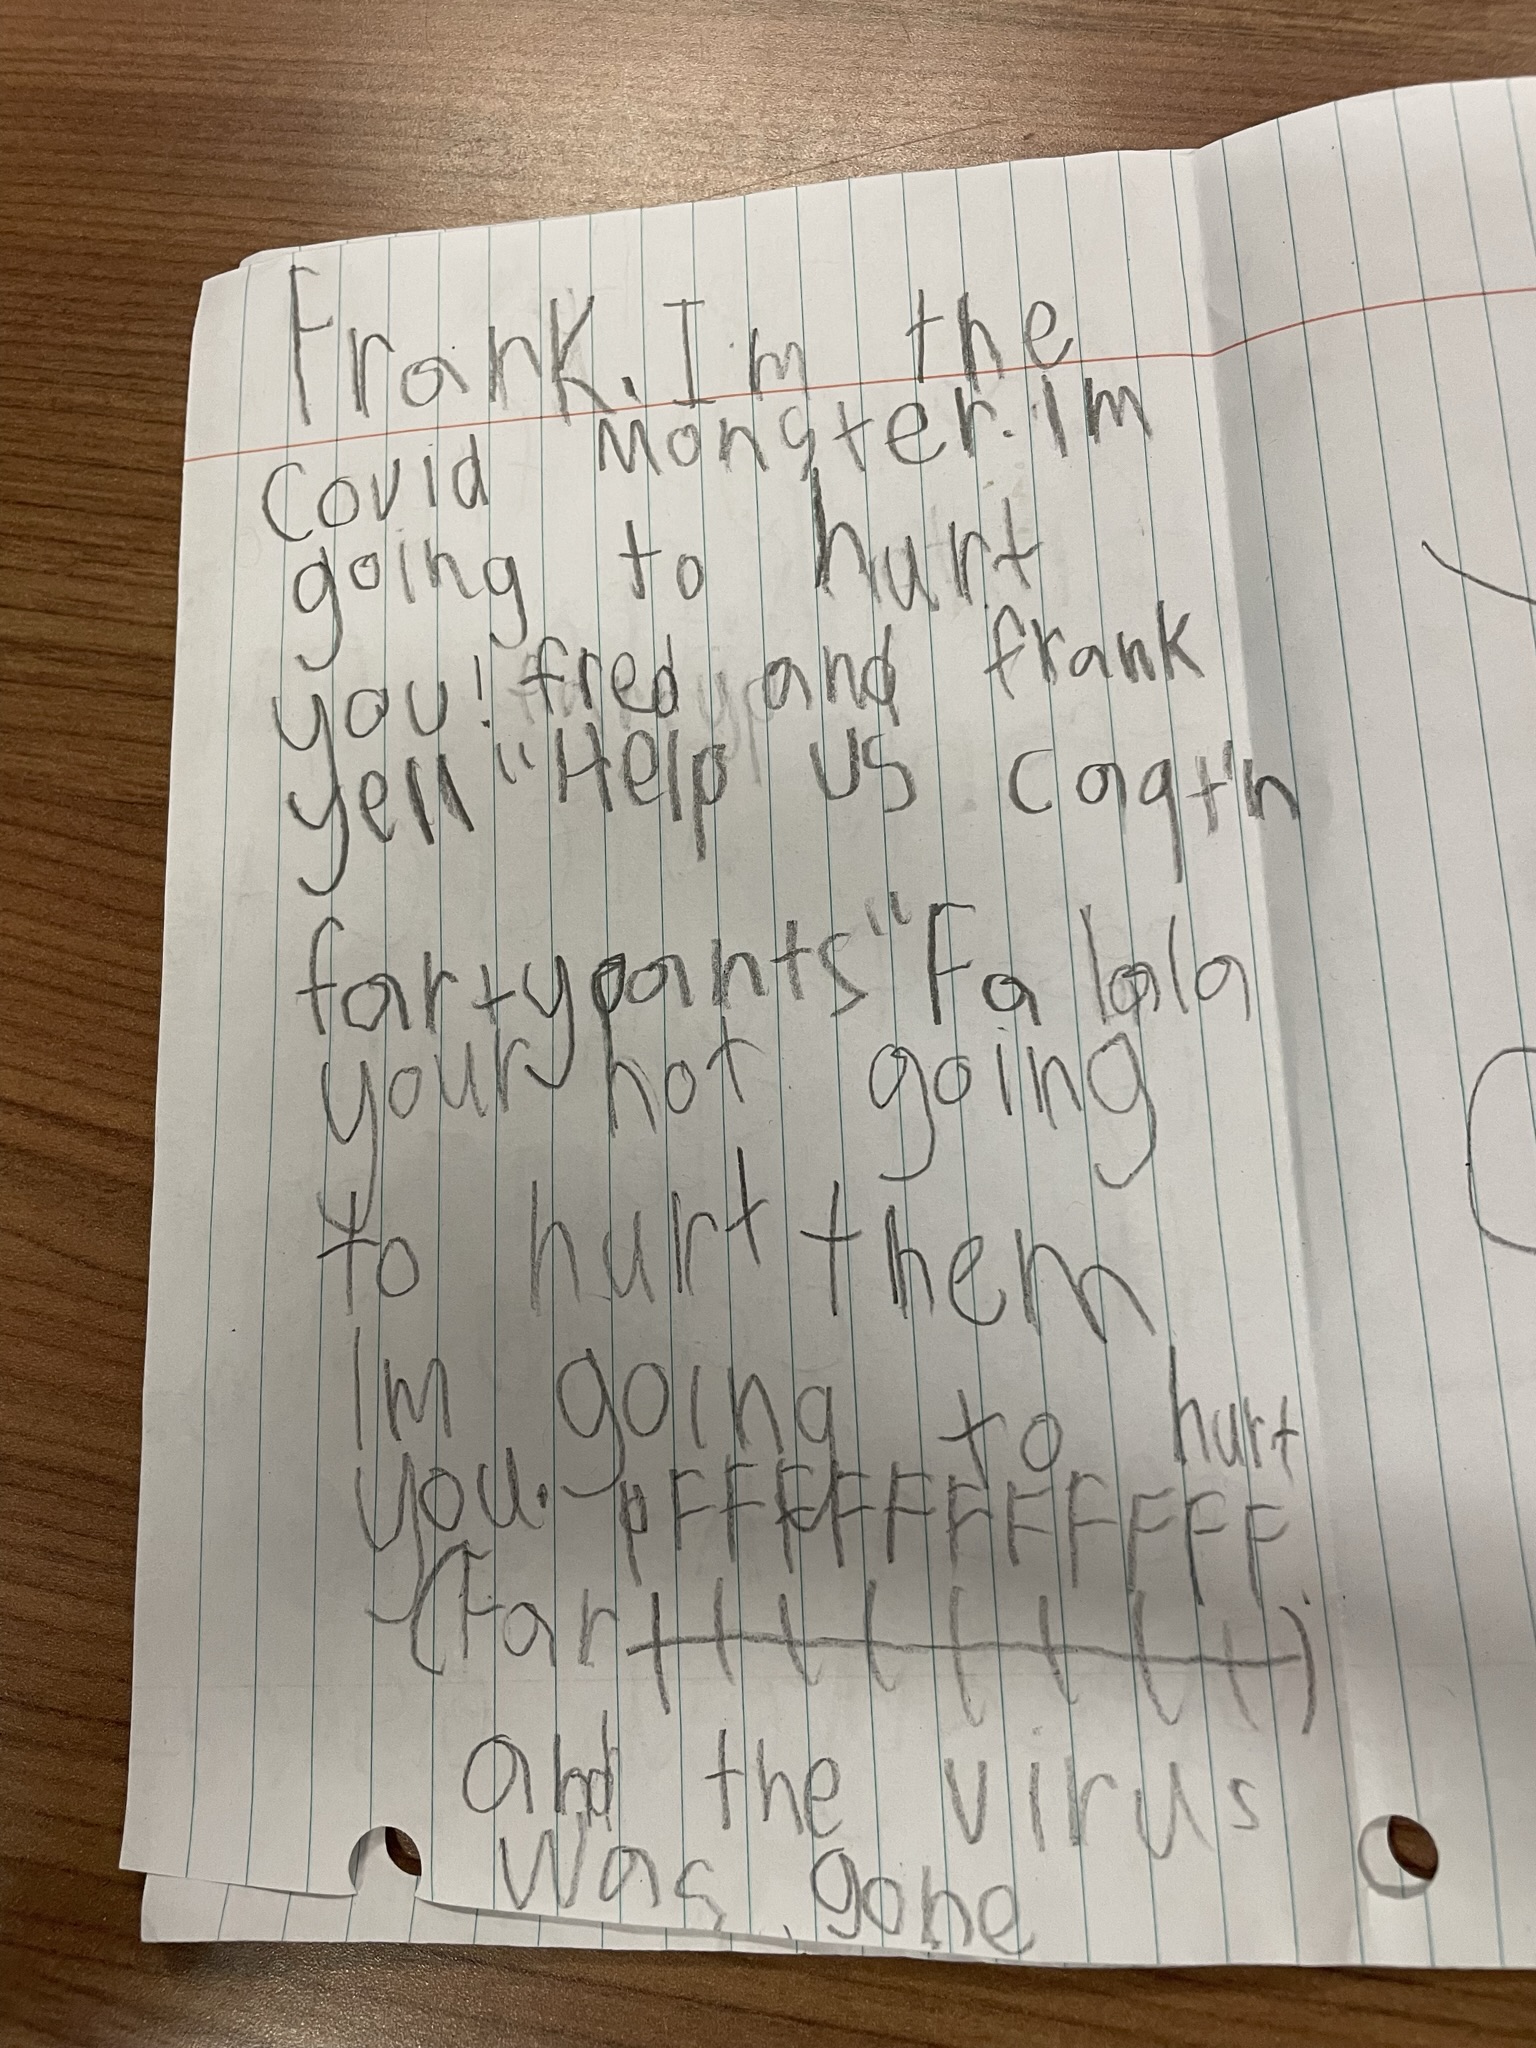 Frank. I'm the
covid Monster. Im
going to hurt
you! fred and frank
yell "Help us Capt'n
fartypants" Fa lala
your not going
to hurt them
Im going to hurt
you. pFFFFFFFFFFF
(Farttttttttt)
and the virus
was gone